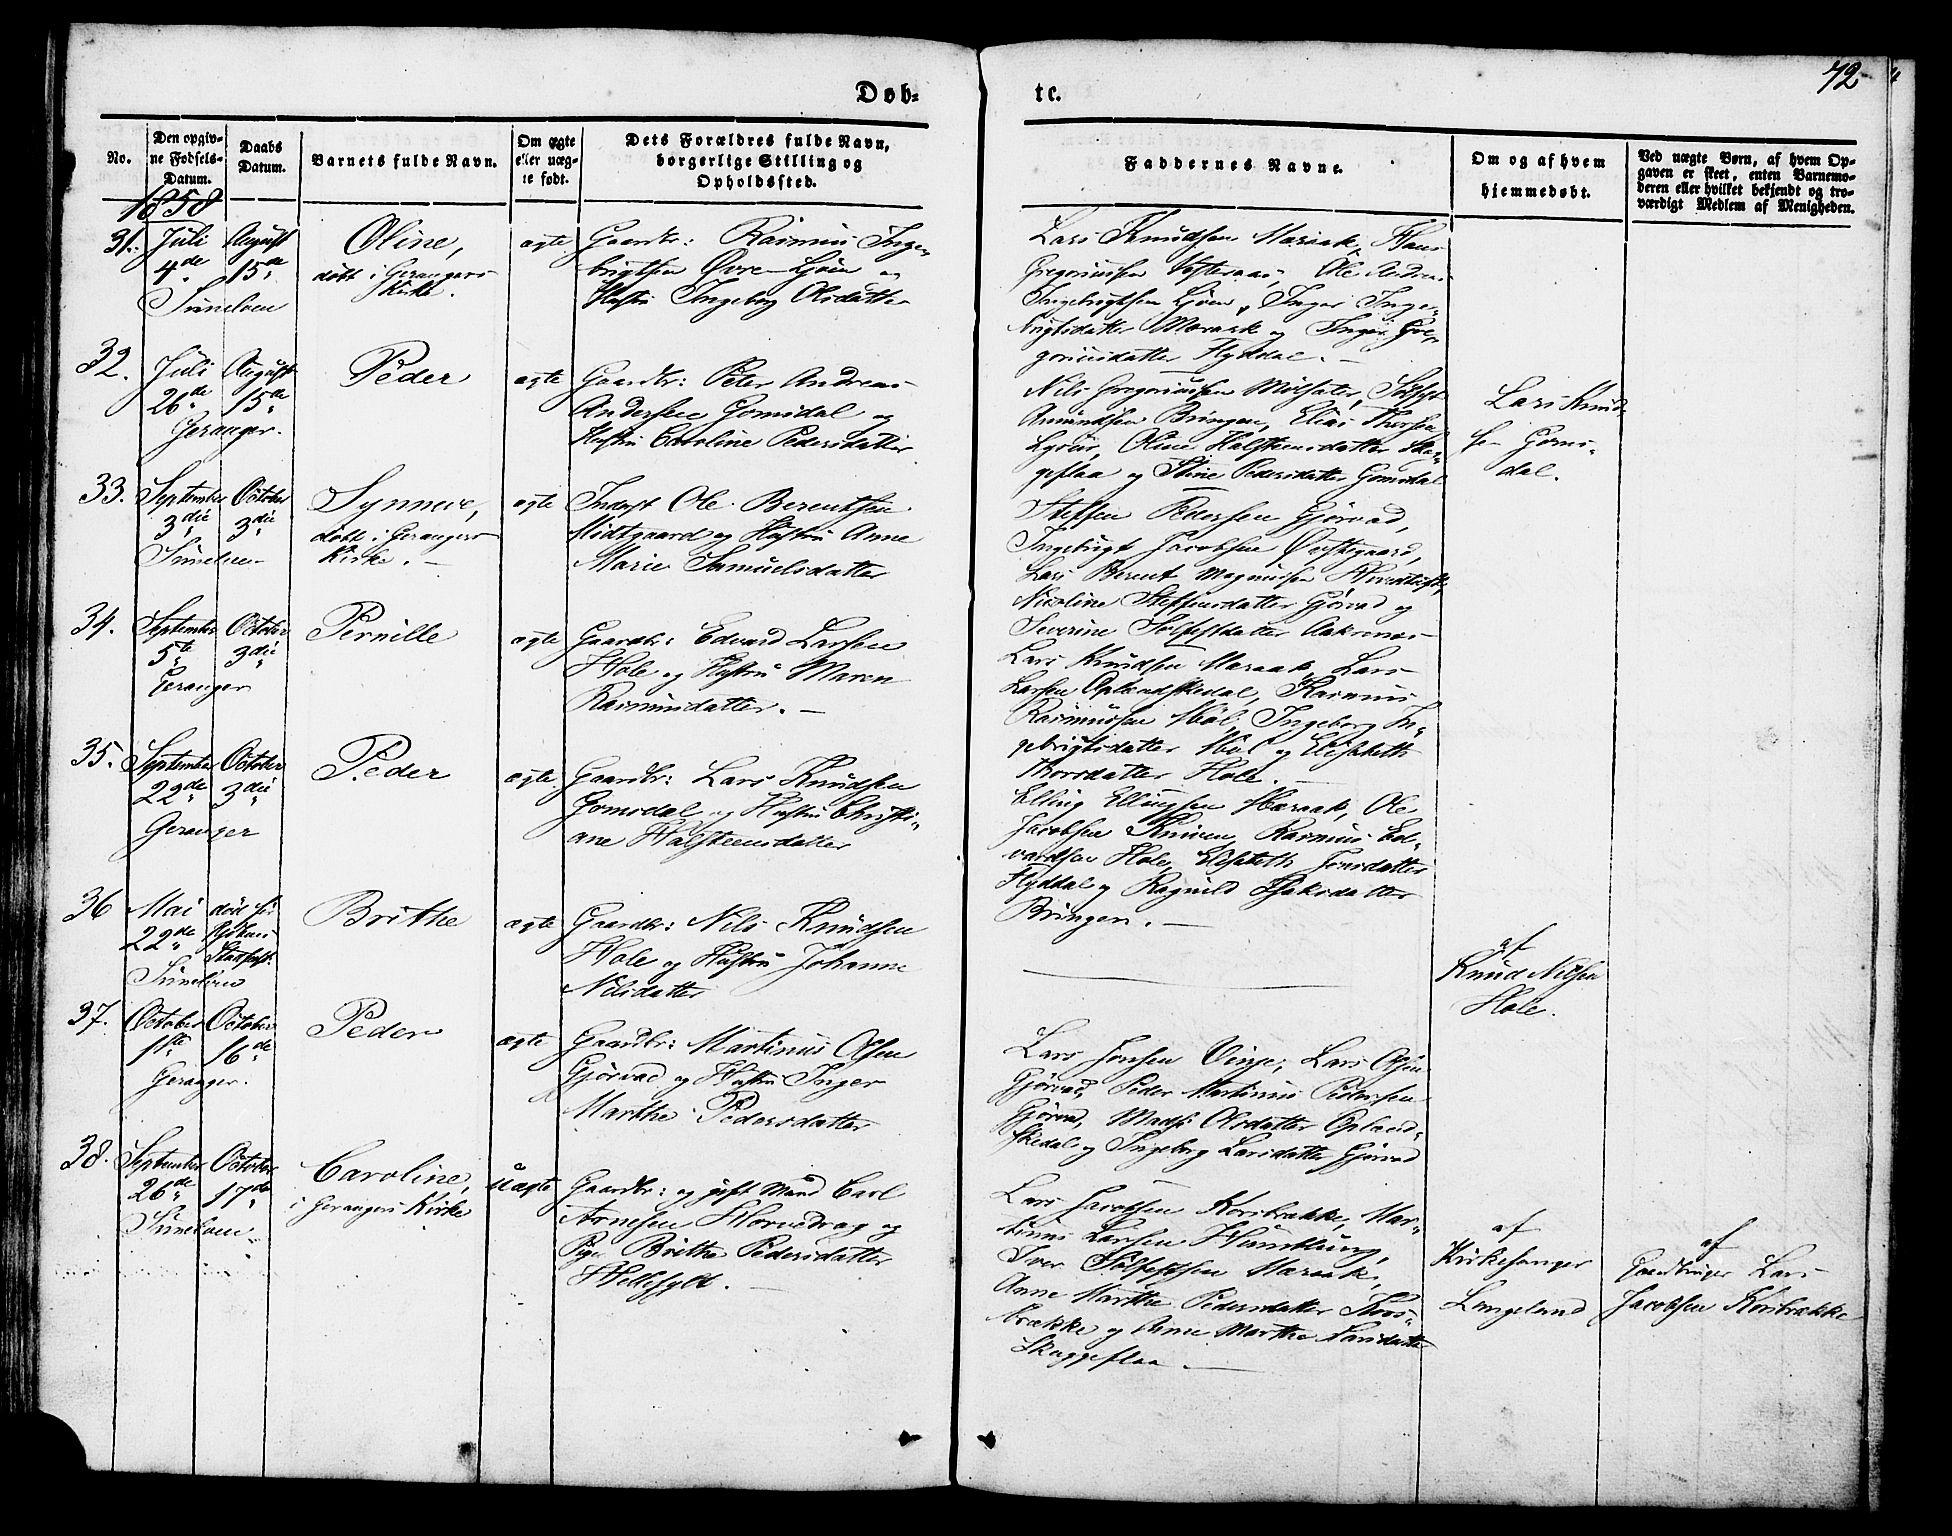 Døb-
te.
72
No.
Den opgiv-
ne Fødsels-
Datum.
Daabs
Datum.
Barnets fulde Navn.
Om ægte
eller uæg-
te født.
Dets Forældres fulde Navn,
borgerlige Stilling og
Opholdssted.
Faddernes Navne.
Om og af hvem
hjemmedøbt.
Ved uægte Børn, af hvem Op-
gaven er skeet, enten Barnemo-
deren eller hvilket bekjendt og tro-
værdigt Medlem af Menigheden.
1858
31.
Juli
4de
Sunelven
August
15de
Oline,
døbt i Gerangers
Kirke.
ægte
Gaardbr: Rasmus Inge-
brigtsen Øvre-Ljøen og
Hustru Ingeborg Olsdatter
Lars Knudsen Maraak, Hans
Gregoriussen, Ole Andreas
Ingebrigtsen Ljøen, Inger Inge-
brigtsdatter Maraak og Inger Gre-
goriusdatter Flyddal.
32.
Juli
26de
Geranger.
August
15de
Peder
ægte
Gaardbr: Peter Andreas
Andersen Gomsdal og
Hustru Caroline Pedersdatter
Nils Gregoriussen Møllsæter, Sølfest
Amundsen Bringen, Elias Thorsen
Oline Halsteensdatter Ska-
geflaa og Stine Pedersdatter Gomsdal
Lars Knud-
sen Goms-
dal.
33.
September
3die
Sunelven
October
3die
Synneve,
døbt i Gerangers
Kirke.
ægte
Inderst Ole Berentsen
Midtgaard og Hustru Anne
Marie Samuelsdatter
Steffen Pedersen Gjørvad,
Ingebrigt Jacobsen Østegaard,
Lars Berent Magnussen
Nicoline Steffensdatter Gjørvad og
Severine Sølfestdatter Aakernæs
34.
September
5te
Geranger
October
3die
Pernille
ægte
Gaardbr: Edvard Larsen
Hole og Hustru Maren
Rasmusdatter.
Lars Knudsen Maraak, Lars
Larsen Oplendskedal, Rasmus
Rasmussen Møl, Ingeborg In-
gebrigtsdatter Møl og Elisabeth
Thorsdatter Hole.
35.
September
22de
Geranger
October
3die
Peder
ægte
Gaardbr: Lars Knudsen
Gomsdal og Hustru Christi-
ane Halsteensdatter
Elling Ellingsen Maraak, Ole
Jacobsen Kniven, Rasmus Ed-
vardsen Hole, Elisabeth Jonsdatter
Flyddal og Ragnild Isaksdatter
Bringen.
36
Mai
22de
Sunelven
død før
Daabens
Stadfest.
Brithe
ægte
Gaardbr: Nils Knudsen
Hole og Hustru Johanne
Nilsdatter
af
Knud Nilsen
Hole.
37.
October
1ste
Geranger.
October
16de
Peder
ægte
Gaardbr: Martinus Olsen
Gjørvad og Hustru Inger
Marthe Pedersdatter
Lars Jonsen Vinje, Lars Olsen
Gjørvad, Peder Martinus Pedersen
Gjørvad, Madsi Olsdatter Opland-
skedal og Ingeborg Larsdatter Gjørvad
38.
September
26de
Sunelven
October
17de
Caroline,
i Gerangers Kirke
Uægte
Gaardbr: og gift Mand Carl
Arnesen Horndrag og
Pige Brithe Pedersdatter
Hellesylt.
Lars Jacobsen Korsbrække, Mar-
tinus Larsen
Iver Sølfestsen Maraak,
Anne Marthe Pedersdatter Kors-
brække og Anne Marthe Larsdatter
Skaggeflaa
af
Kirkesanger
Langeland
af
Gaardbruger Lars
Jacobsen Korsbrække